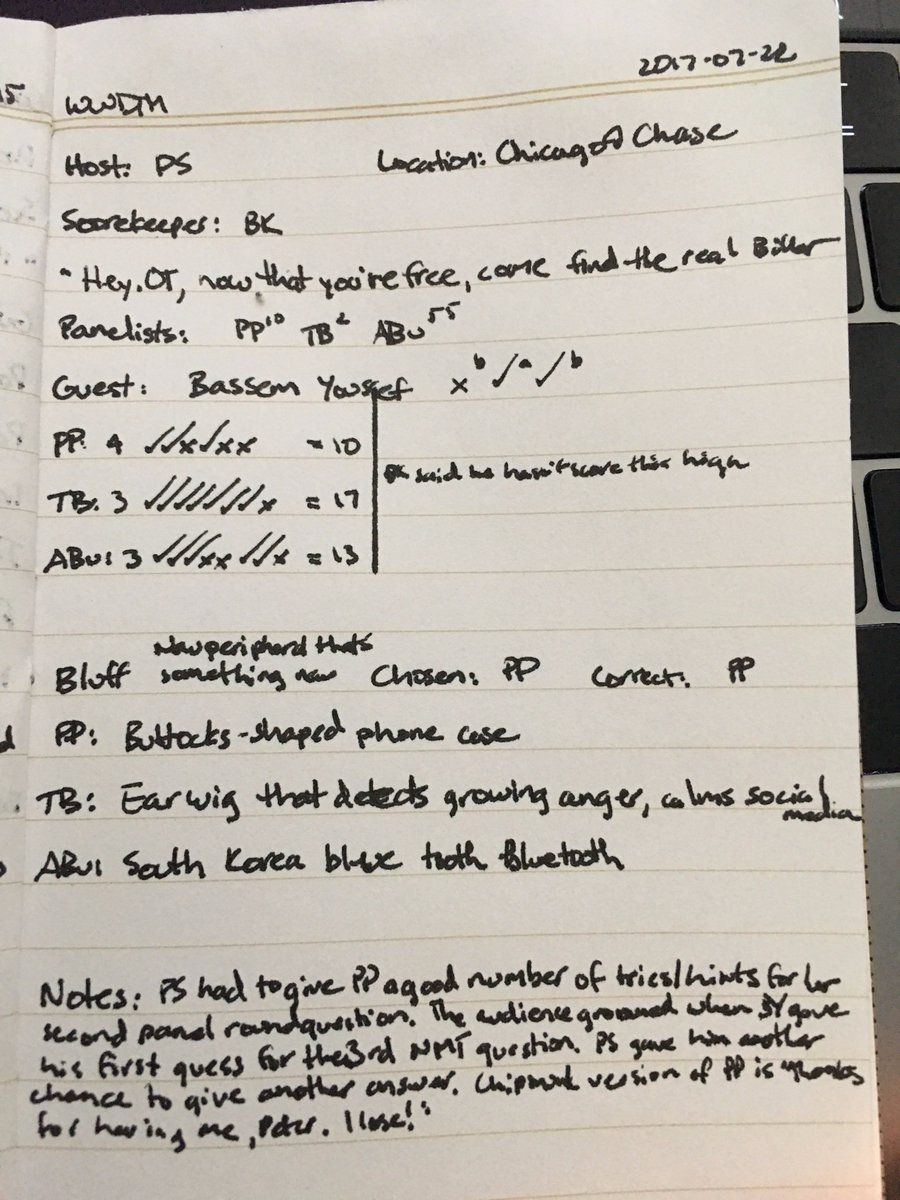 WWDTM 2017-07-22
Host: PS Location: Chicago Chase
Scorekeeper: BK
"Hey, OJ, now that you're free, come find the real Biller
Panelists: PP¹⁰ TB² ABu⁵⁵
Guest: Bassem Youssef xᵇ ✓ᵃ ✓ᵇ
PP: 4 ✓✓x✓xx = 10
TB: 3 ✓✓✓✓✓✓✓x = 17
said he hasn't score this high
ABu: 3 ✓✓✓xx✓✓x = 13
New peripheral that's
Bluff something new Chosen: PP Correct: PP
PP: Buttocks-shaped phone case
TB: Earwig that detects growing anger, calms social
media
ABu: South Korea tooth Bluetooth
Notes: PS had to give PP a good number of tries/hints for her
second panel round question. The audience groaned when BY gave
his first guess for the 3rd NMJ question. PS gave him another
chance to give another answer. Chipmunk version of PP is "Thanks
for having me, Peter. I lose!"